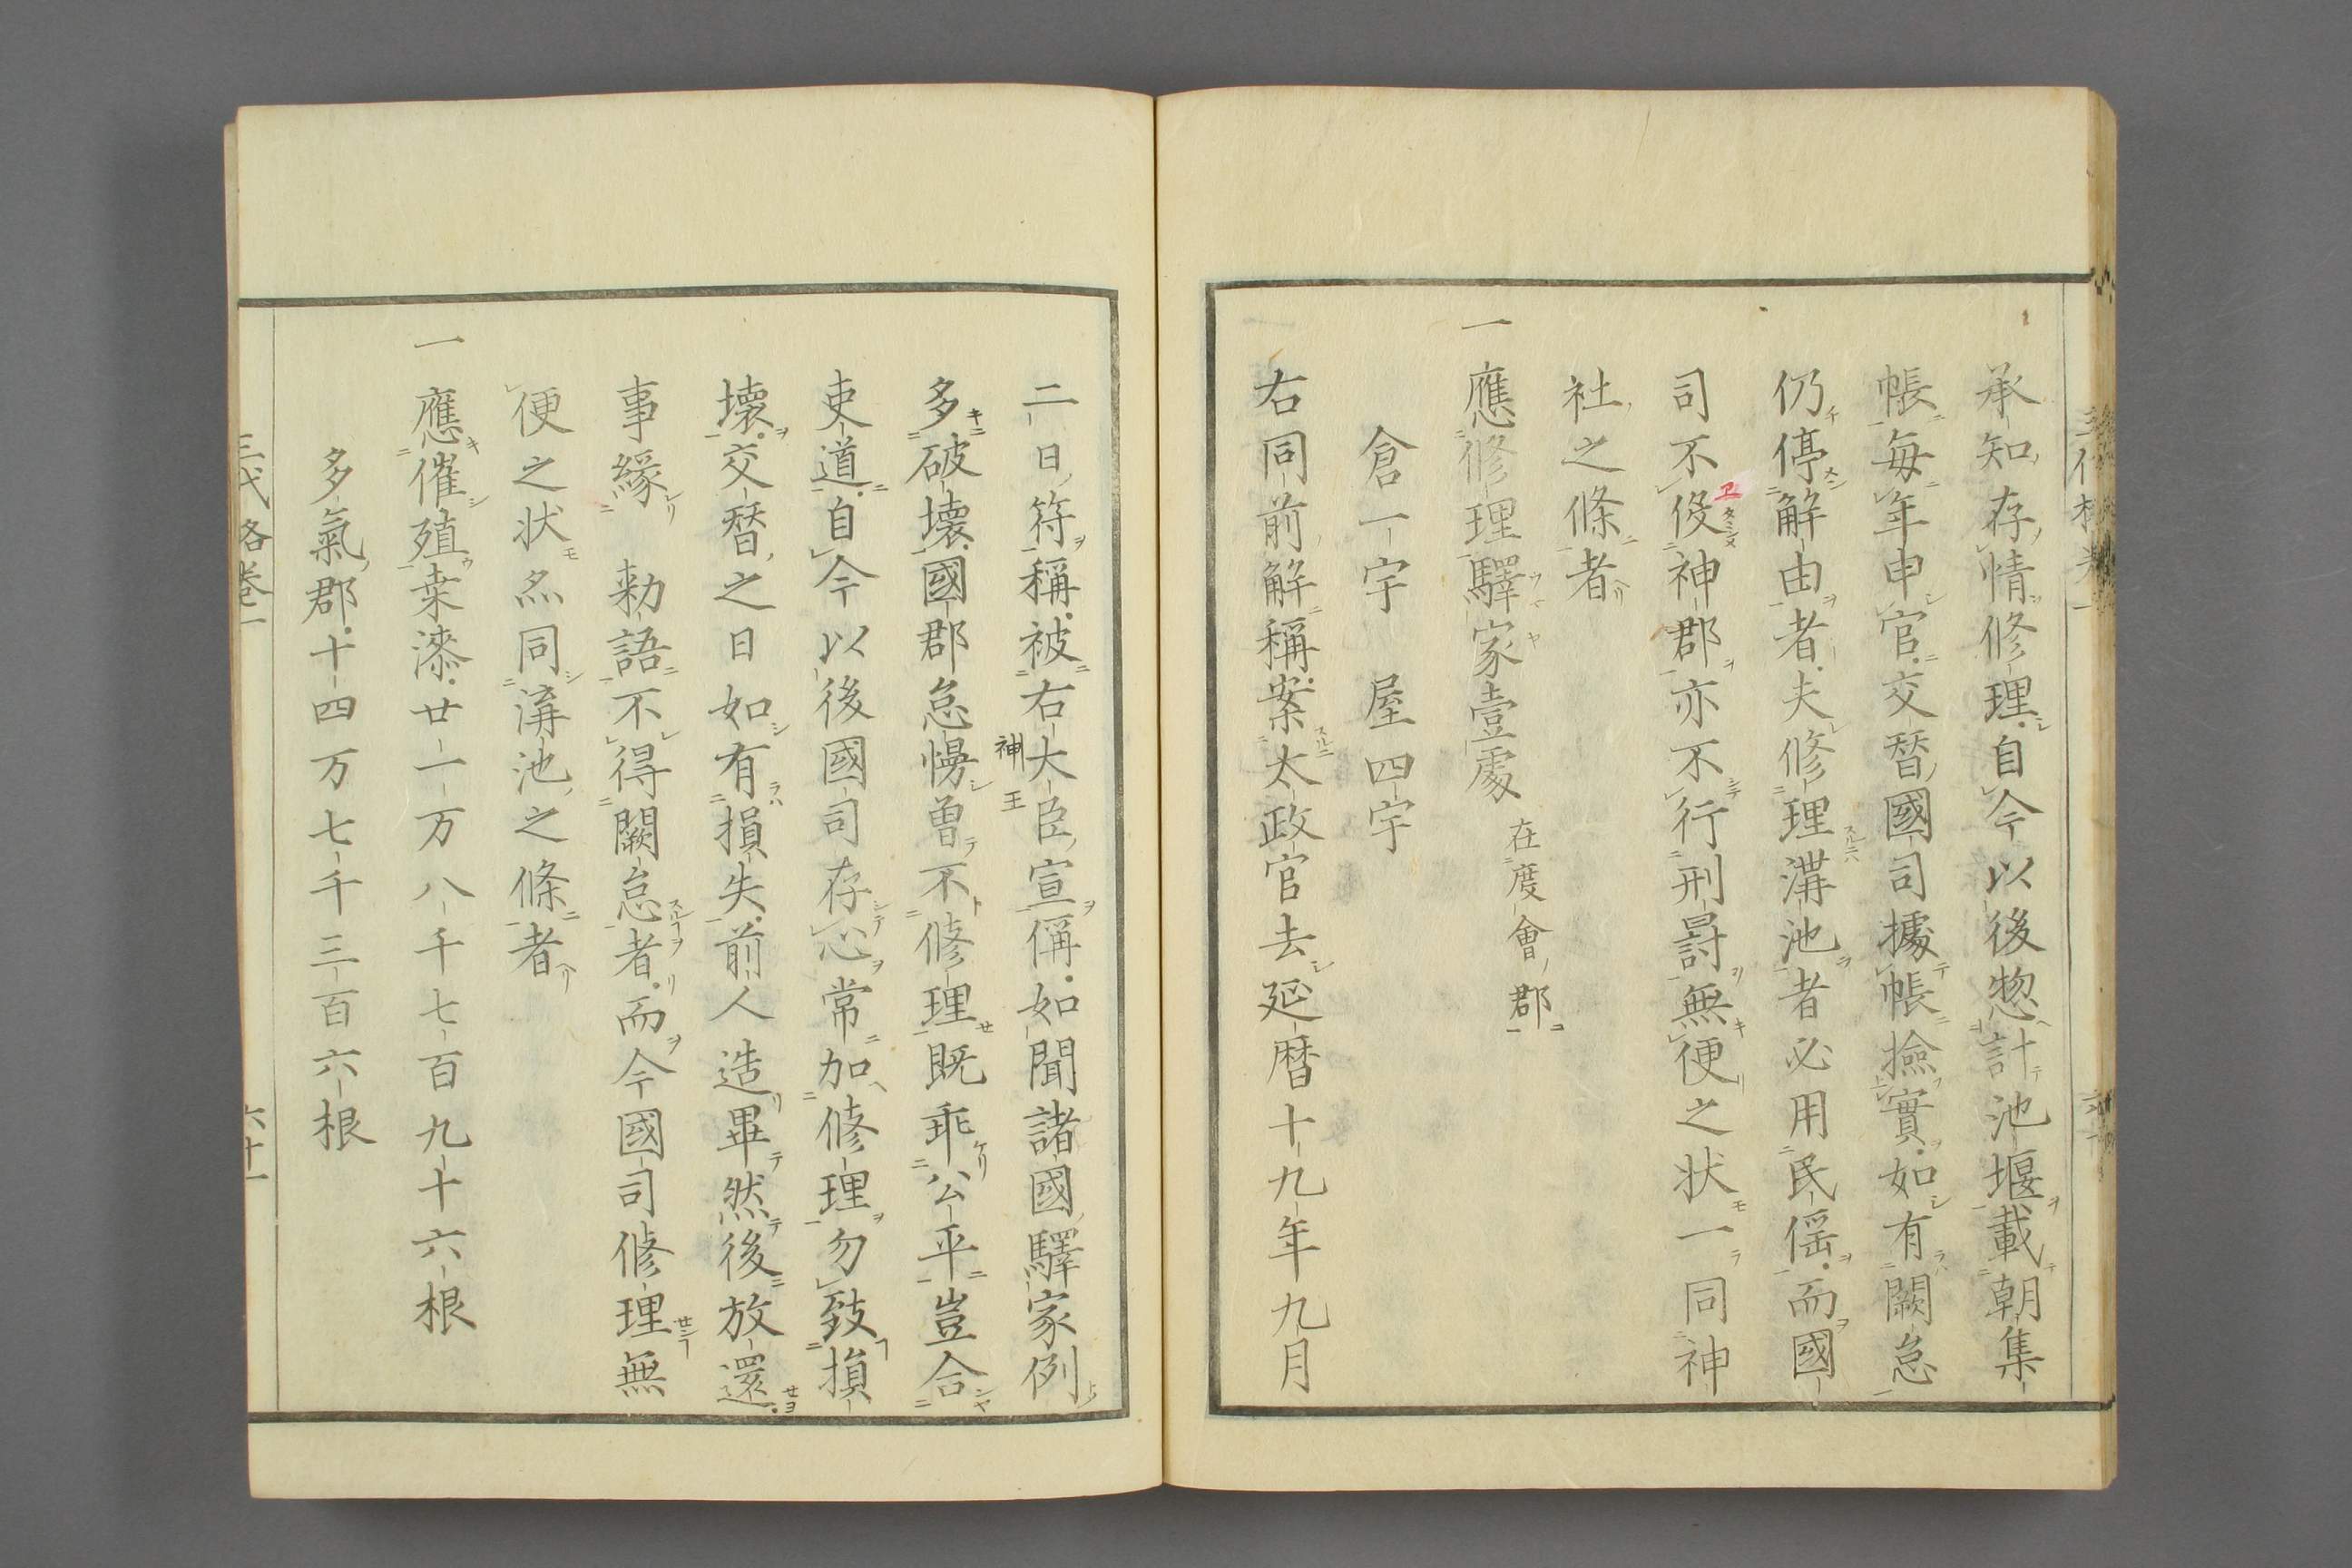 承知存情修理自今以後惣計池堰載朝集
帳每年申官交替國司據帳撿實如有闕怠
仍停解由者夫修理溝池者必用民傜而國
司不役神郡亦不行刑罸無便之状一同神
社之條者
一應修理驛家壹處在度會郡
倉一宇 屋四宇
右同前解稱案太政官去延暦十九年九月
二日符稱被右大臣宣偁如聞諸國驛家例
神王
多破壞國郡怠慢曽不修理既乖公平豈合
吏道自今以後國司存心常加修理勿致損
壞交替之日如有損失前人造畢然後放還
事緣 勅語不得闕怠者而今國司修理無
便之状亦同溝池之條者
一應催殖桒漆廿一万八千七百九十六根
多氣郡十四万七千三百六根
三代格卷一
六十一